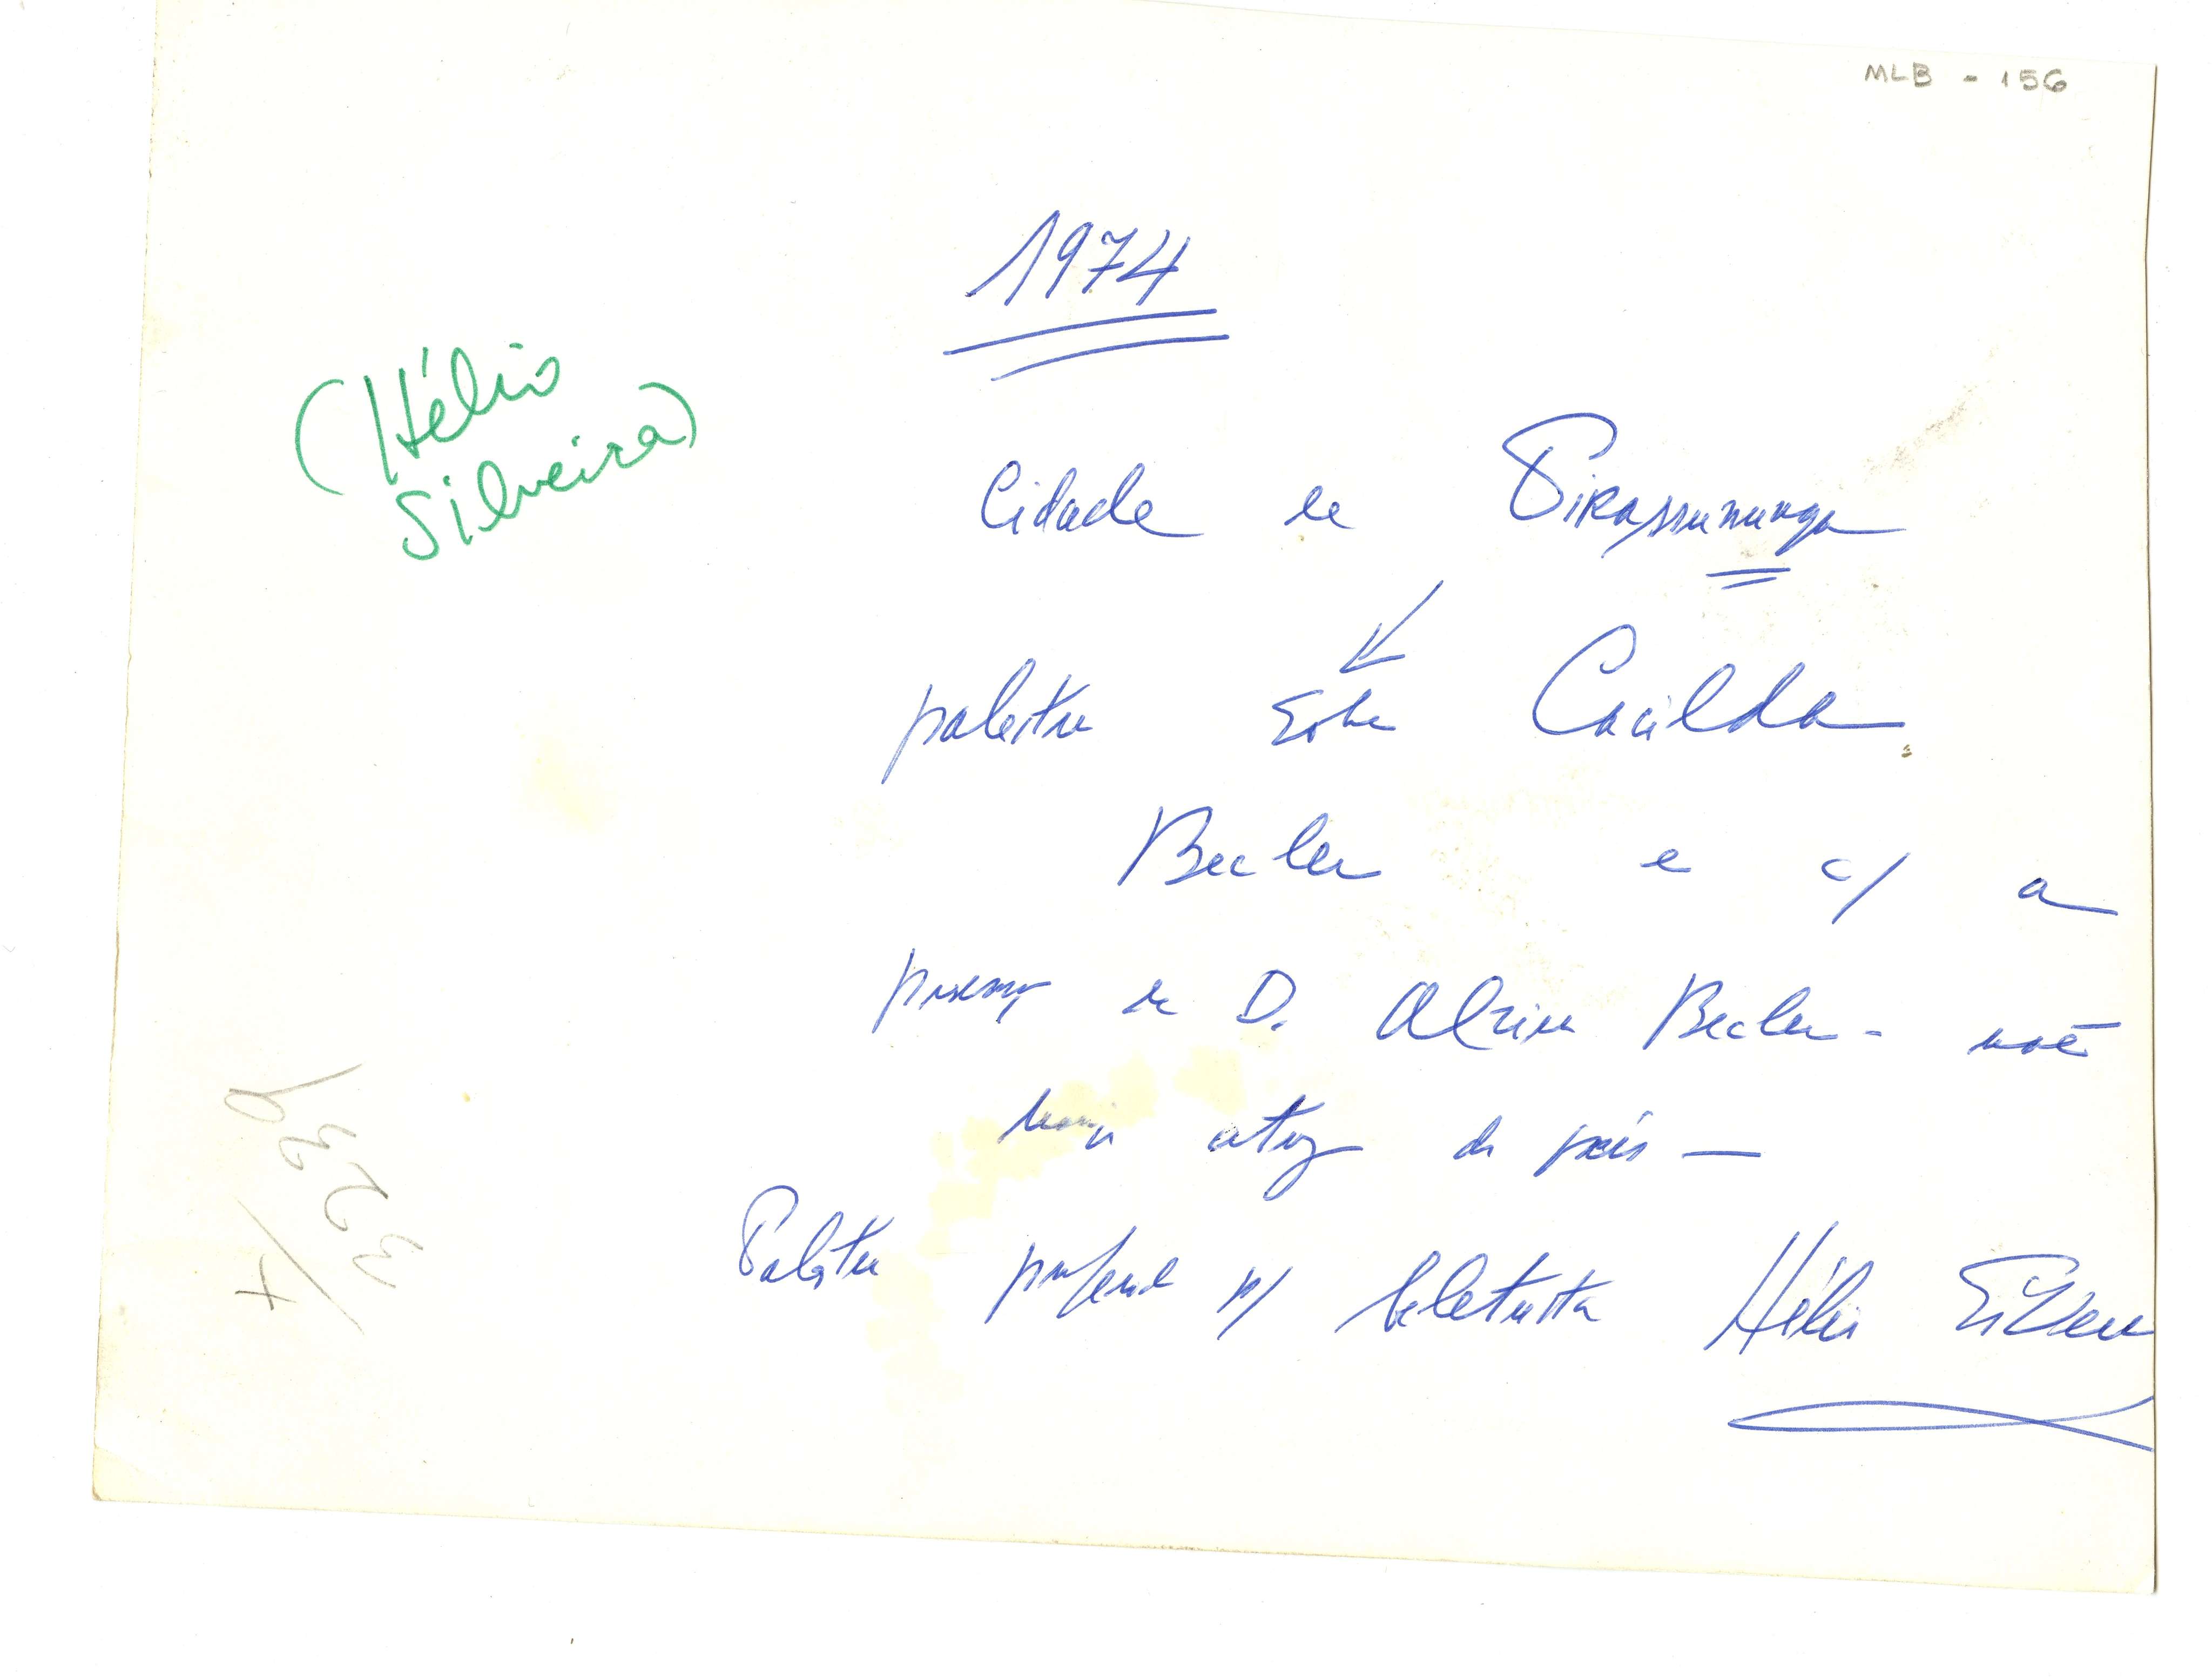 MLB - 156
1974
(Hélio
Silveira)
Cidade de Pirassununga
palestra sobre Cacilda
Becker e c/ a
presença de D. Alzira Becker - mãe
atriz do país —
Palestra proferida p/ beletrista Hélio Silveira